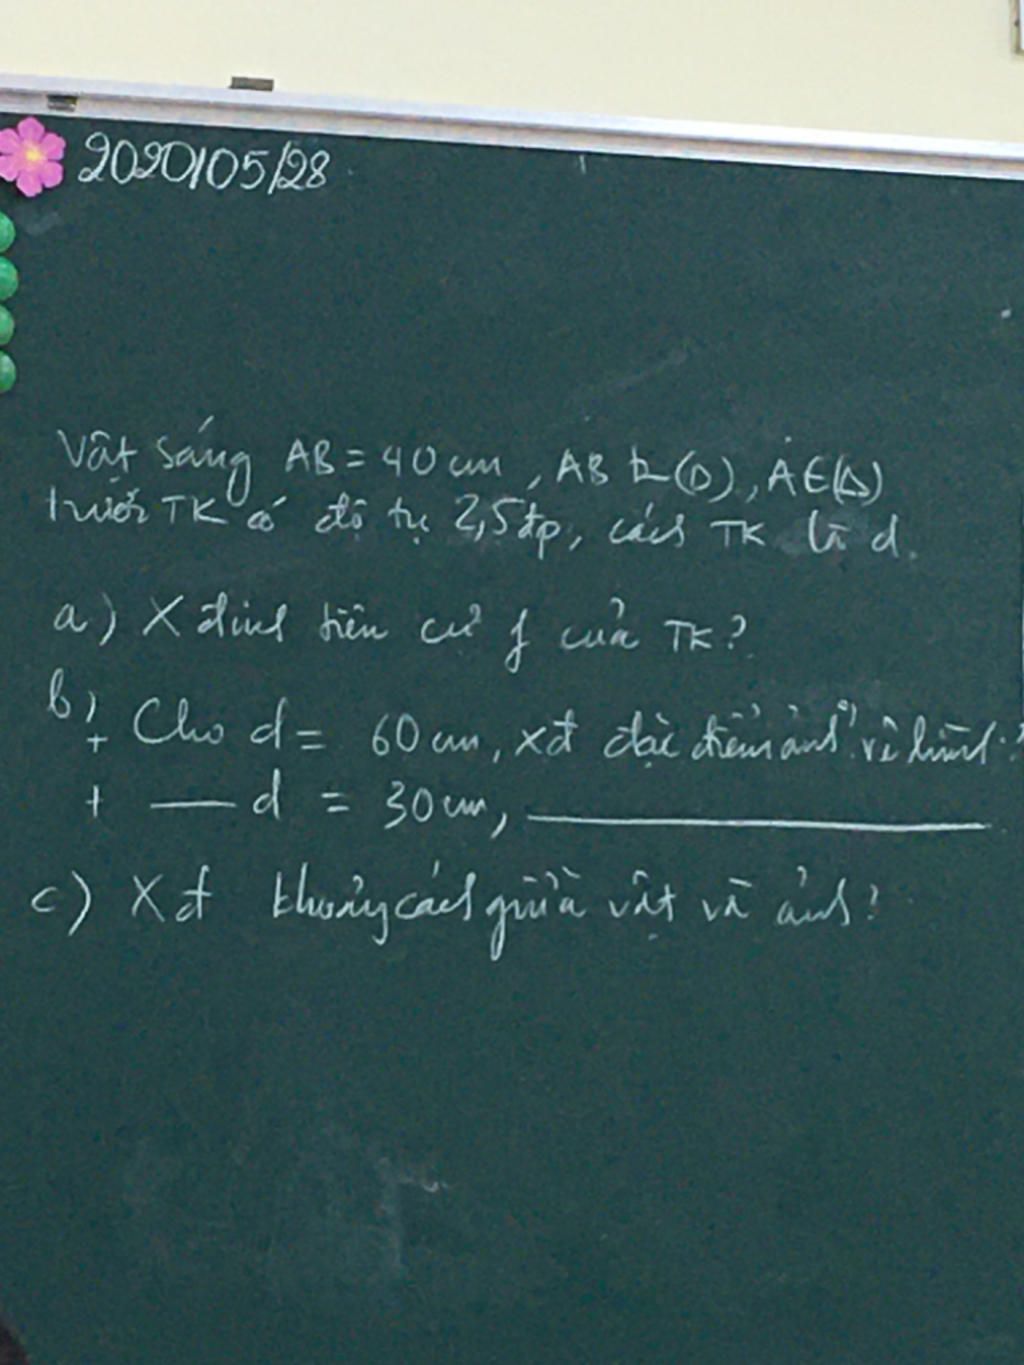 2020/05/28
Vật sáng AB = 40 cm, AB ⊥ (Δ), A ∈ (Δ)
trước TK có độ tụ 2,5 đp, cách TK là d.
a) X định tiêu cự f của TK?
b) + Cho d = 60 cm, xđ đặc điểm ảnh? vẽ hình?
+ — d = 30 cm, ————
c) Xđ khoảng cách giữa vật và ảnh?